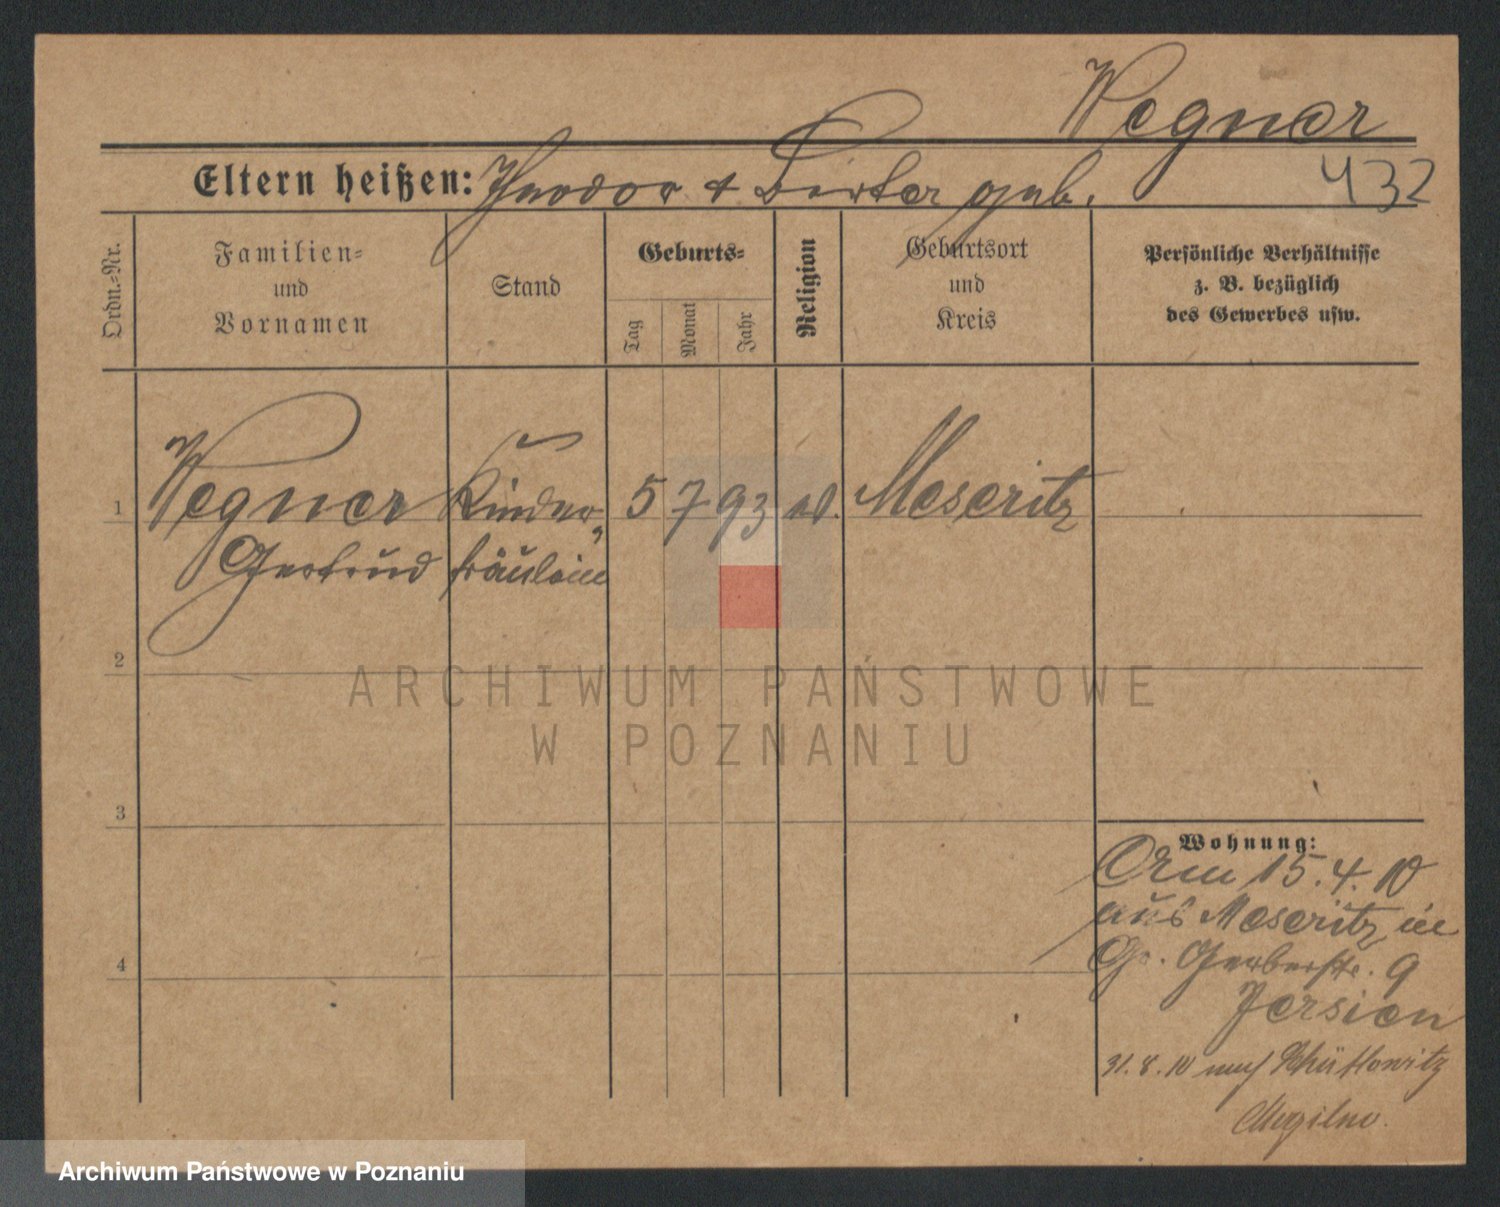 Wegner
Eltern heißen: Theodor & geb.
432
Ordn.-Nr.
Familien-
und
Vornamen
Stand
Geburts-
Tag
Monat
Jahr
Religion
Geburtsort
und
Kreis
Persönliche Verhältnisse
z. B. bezüglich
des Gewerbes usw.
1 Wegner Kinder- 5 7 93 Meseritz
Gertrud fräulein
2
3
4
Wohnung:
15.4.10
aus Meseritz in
Gr. Gerberstr. 9
31.8.10 nach
Mogilno.
ARCHIWUM PAŃSTWOWE
W POZNANIU
Archiwum Państwowe w Poznaniu